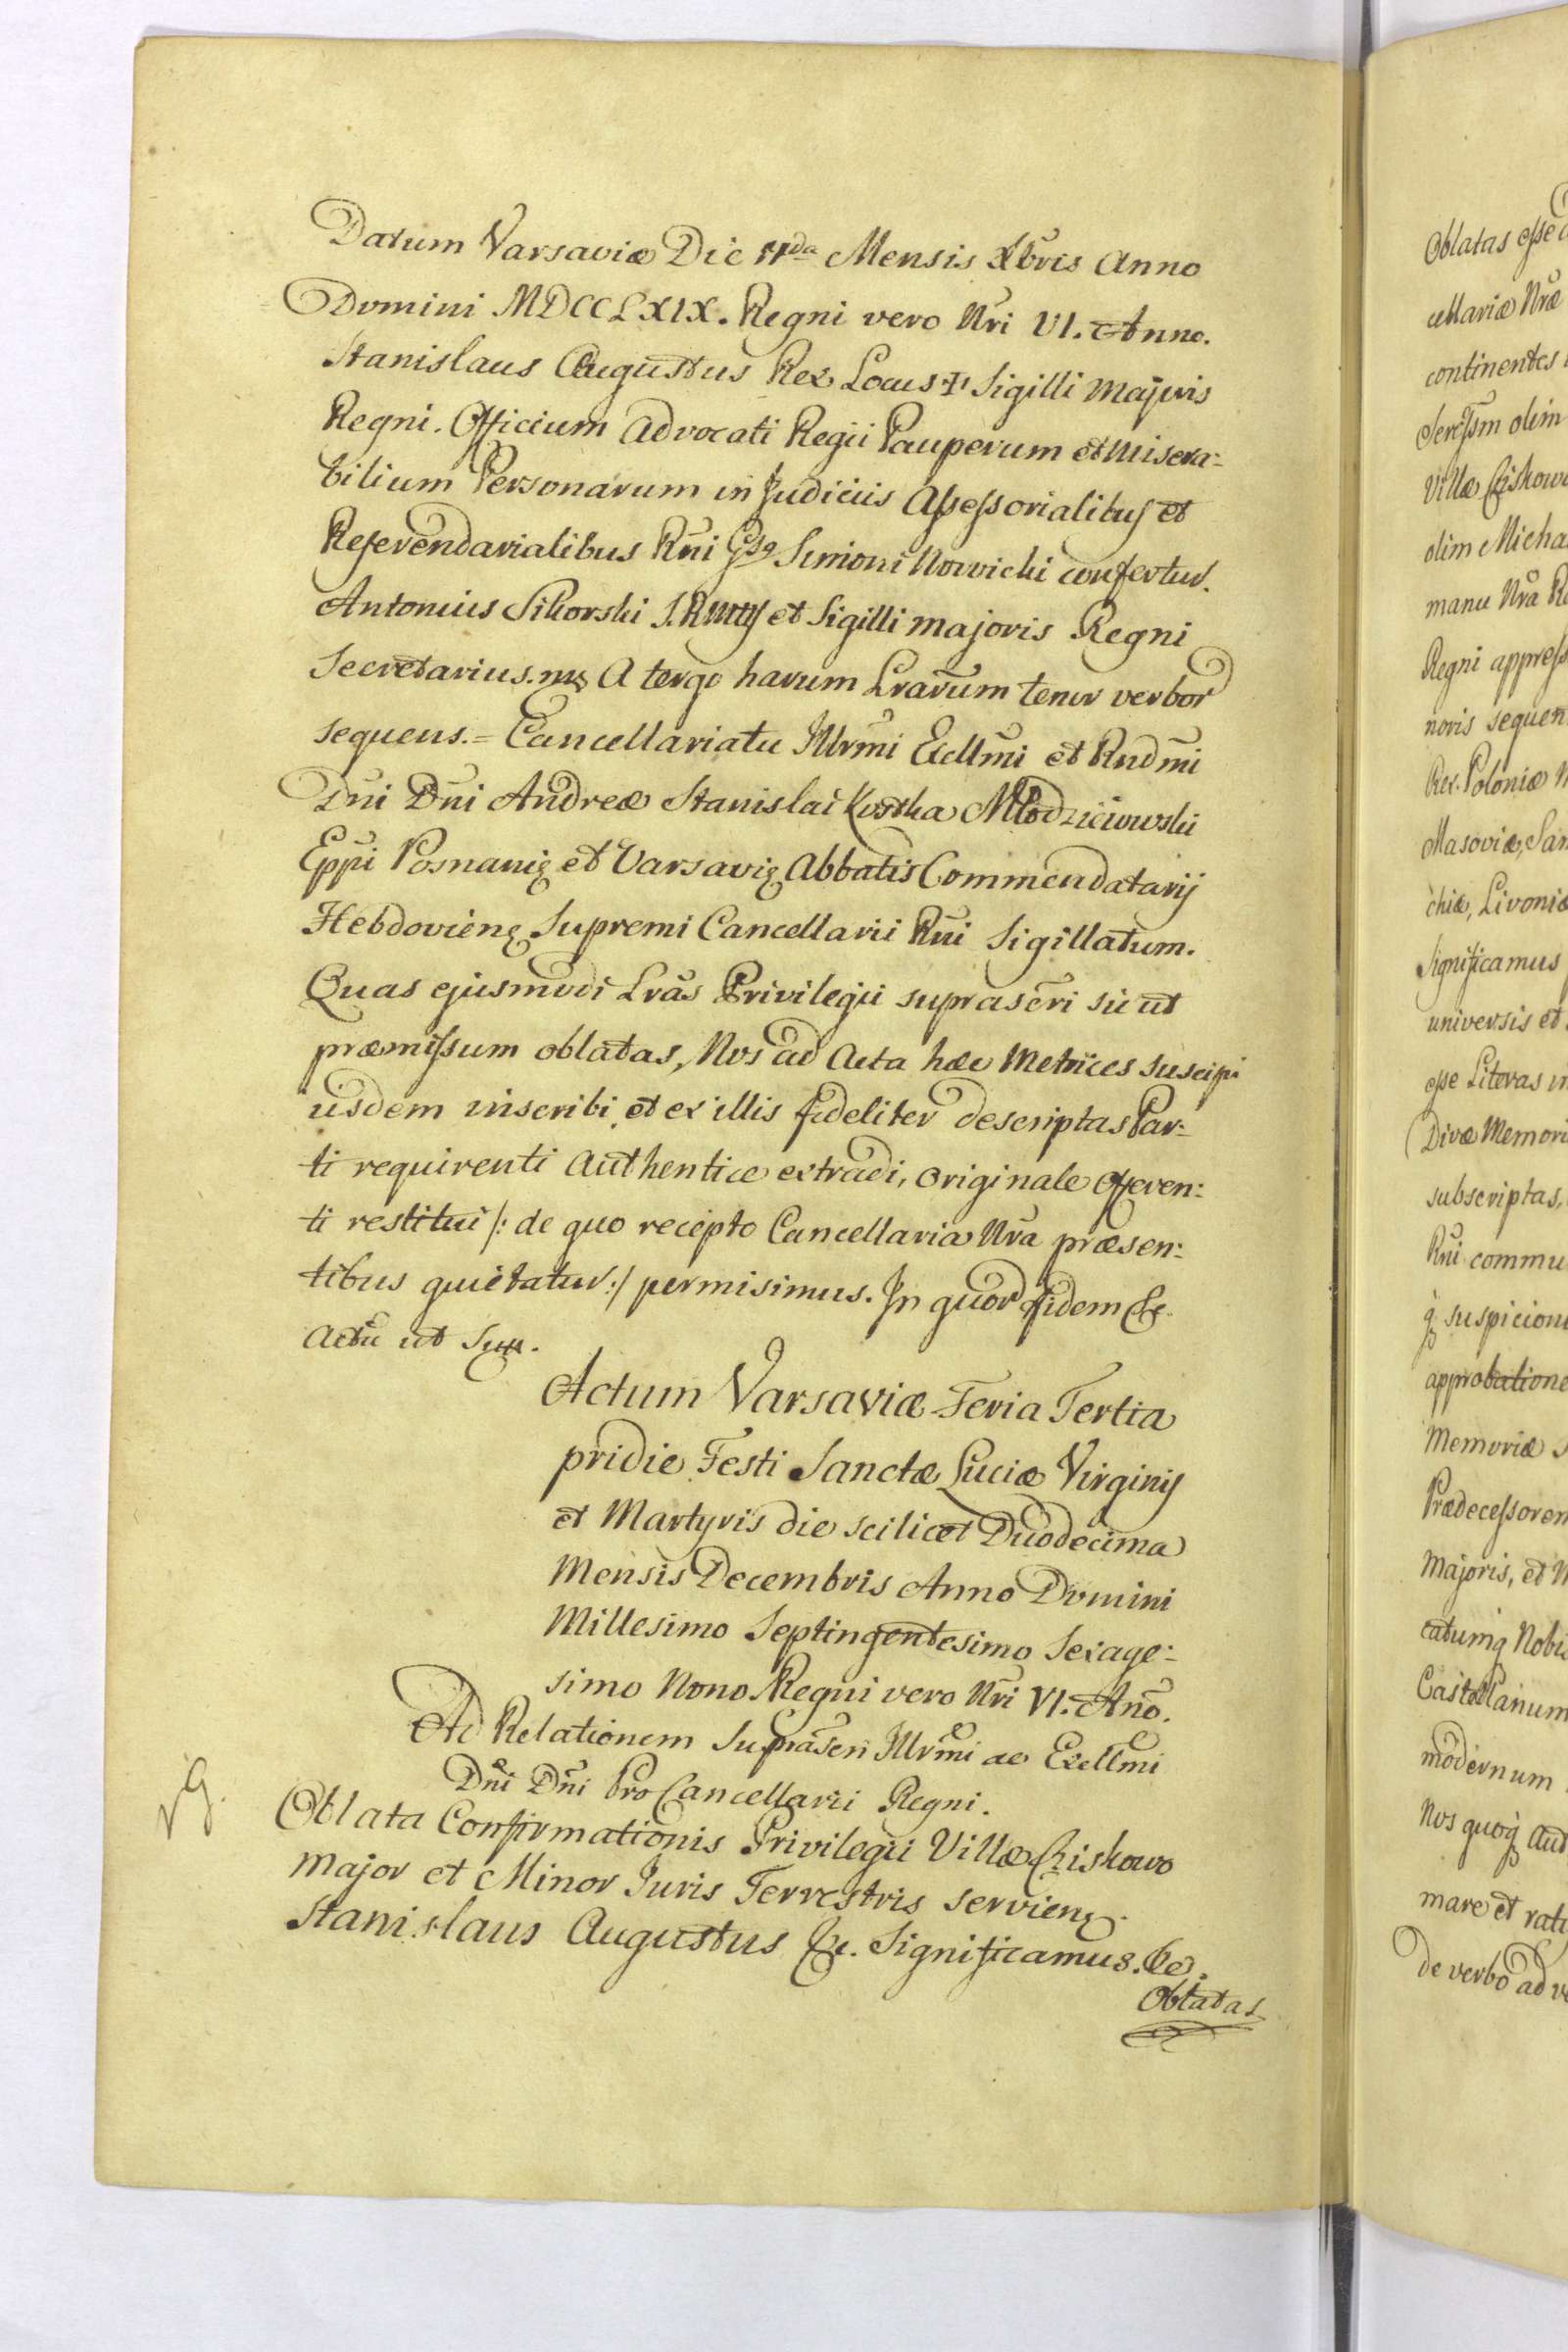 Datum Varsaviæ Die 11da Mensis Xbris Anno
Domini MDCCLXIX. Regni vero Nri VI. Anno.
Stanislaus Augustus Rex Locus ✝ Sigilli Majoris
Regni. Officium Advocati Regii Pauperum et Misera-
bilium Personarum in Judiciis Assessorialibus et
Referendarialibus Rni Gso Simioni Nowicki confertur.
Antonius Sikorski S.R.Mttis et Sigilli majoris Regni
Secretarius. A tergo harum Lrarum tenor verbor
sequens.= Cancellariatu Illrmi Excllmi et Rndmi
Dni Dni Andreæ Stanislai Kostka Młodzieiowski
Eppi Posnanię et Varsavię Abbatis Commendatarij
Hebdovień Supremi Cancellarii Rni Sigillatum.
Quas ejusmodi Lras Privilegii suprascri sicut
præmissum oblatas, Nos ad Acta hæc Metrices suscipi
iisdem inscribi, et ex illis fideliter descriptas Par-
ti requirenti Authentice extradi, originale Offeren-
ti restitui /: de quo recepto Cancellaria Nra præsen-
tibus quietatur :/ permisimus. In quor fidem &c.
Actu ut Supr.
Actum Varsaviæ Feria Tertia
pridie Festi Sanctæ Luciæ Virginis
et Martyris die scilicet Duodecima
Mensis Decembris Anno Domini
Millesimo Septingentesimo Sexage-
simo Nono Regni vero Nri VI. Ano.
Ad Relationem Suprascri Illrmi ac Excllmi
Dni Dni Pro Cancellarii Regni.
Oblata Confirmationis Privilegii Villæ Cziskowo
Major et Minor Juris Terrestris servień
Stanislaus Augustus &c. Significamus. &c.
Oblatas
Oblatas esse
cellariæ Nræ
continentes
Serenissm olim
Villæ Cziskow
olim Micha
manu Nra Re
Regni appress
noris sequen
Rex Poloniæ M
Masoviæ, Sam
chiæ, Livoniæ
Significamus
universis et
esse Literas
Divæ Memori
subscriptas,
Rni commu
q suspicioni
approbatione
Memoriæ S
Prædecessorem
Majoris, et M
catumq Nobi
Castellanum
modernum
Nos quoq Aut
mare et rati
de verbo ad ve